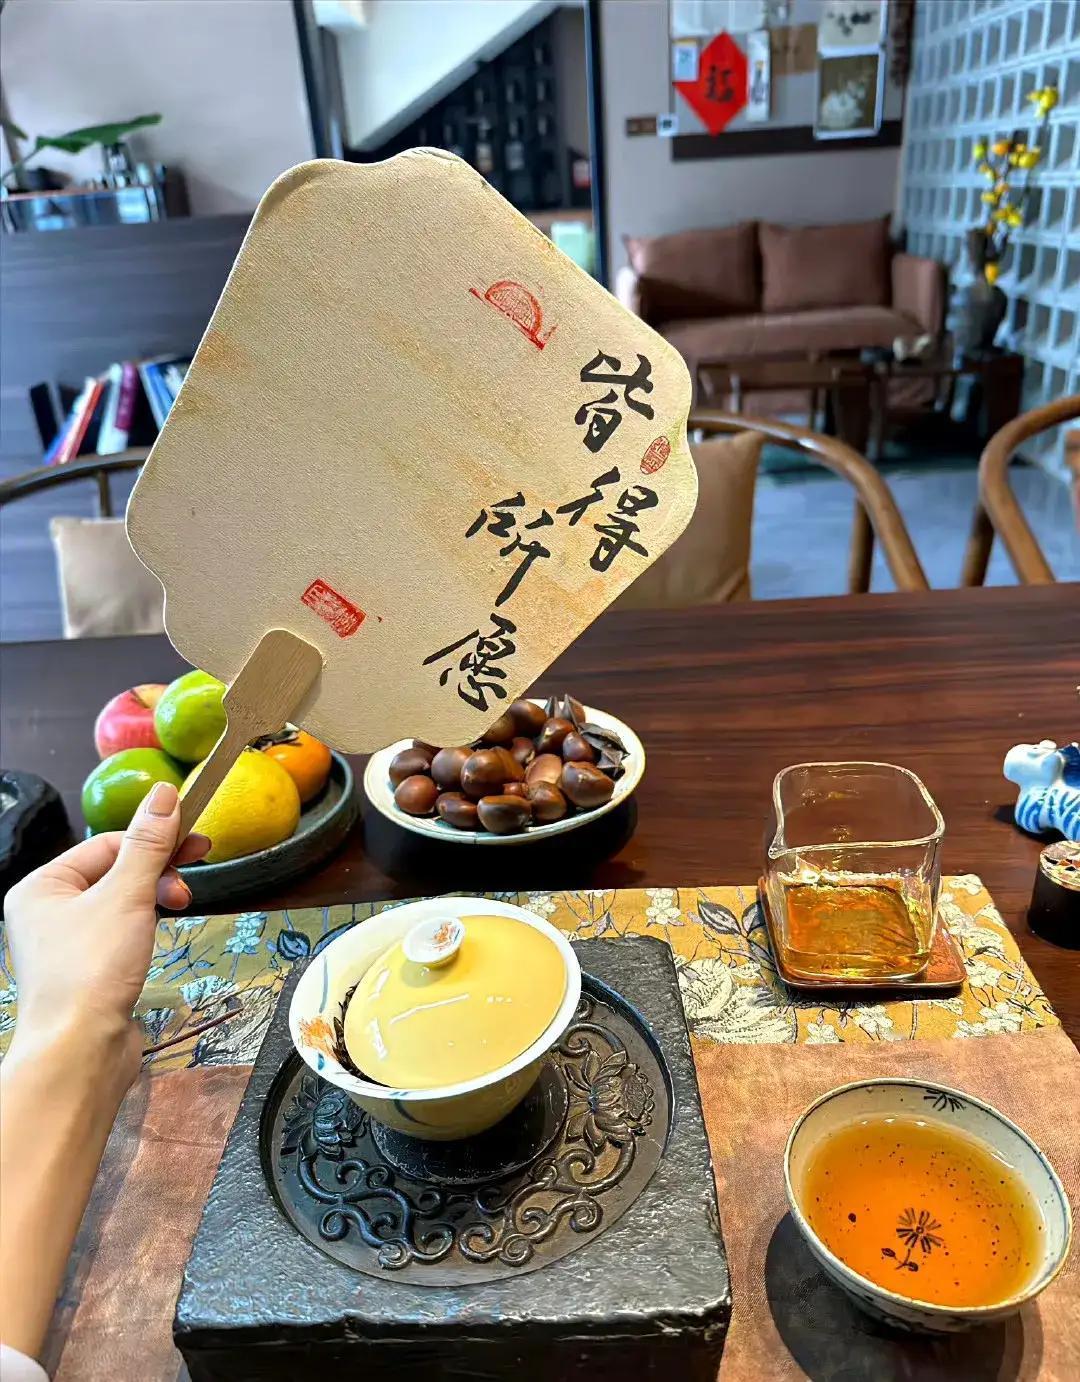 皆得
所愿
福